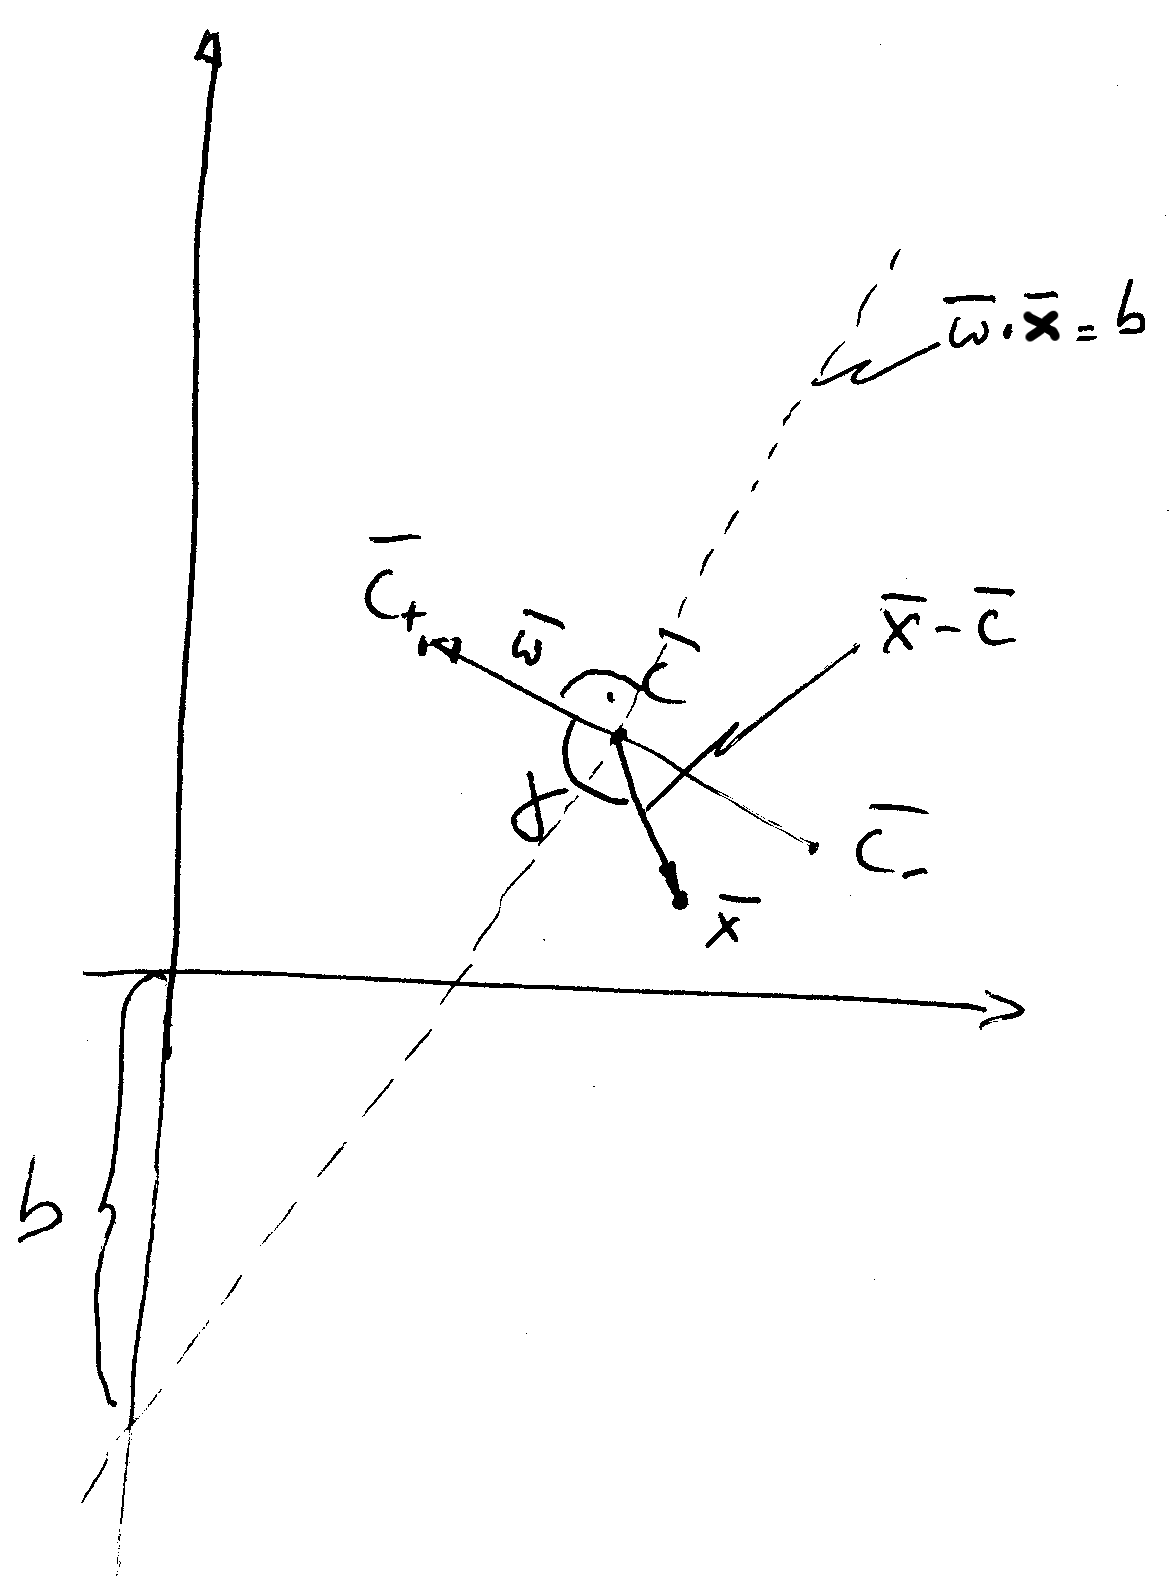 w̅·x̅=b
c̅₊
w̅
c̅
x̅-c̅
γ
c̅₋
x̅
b